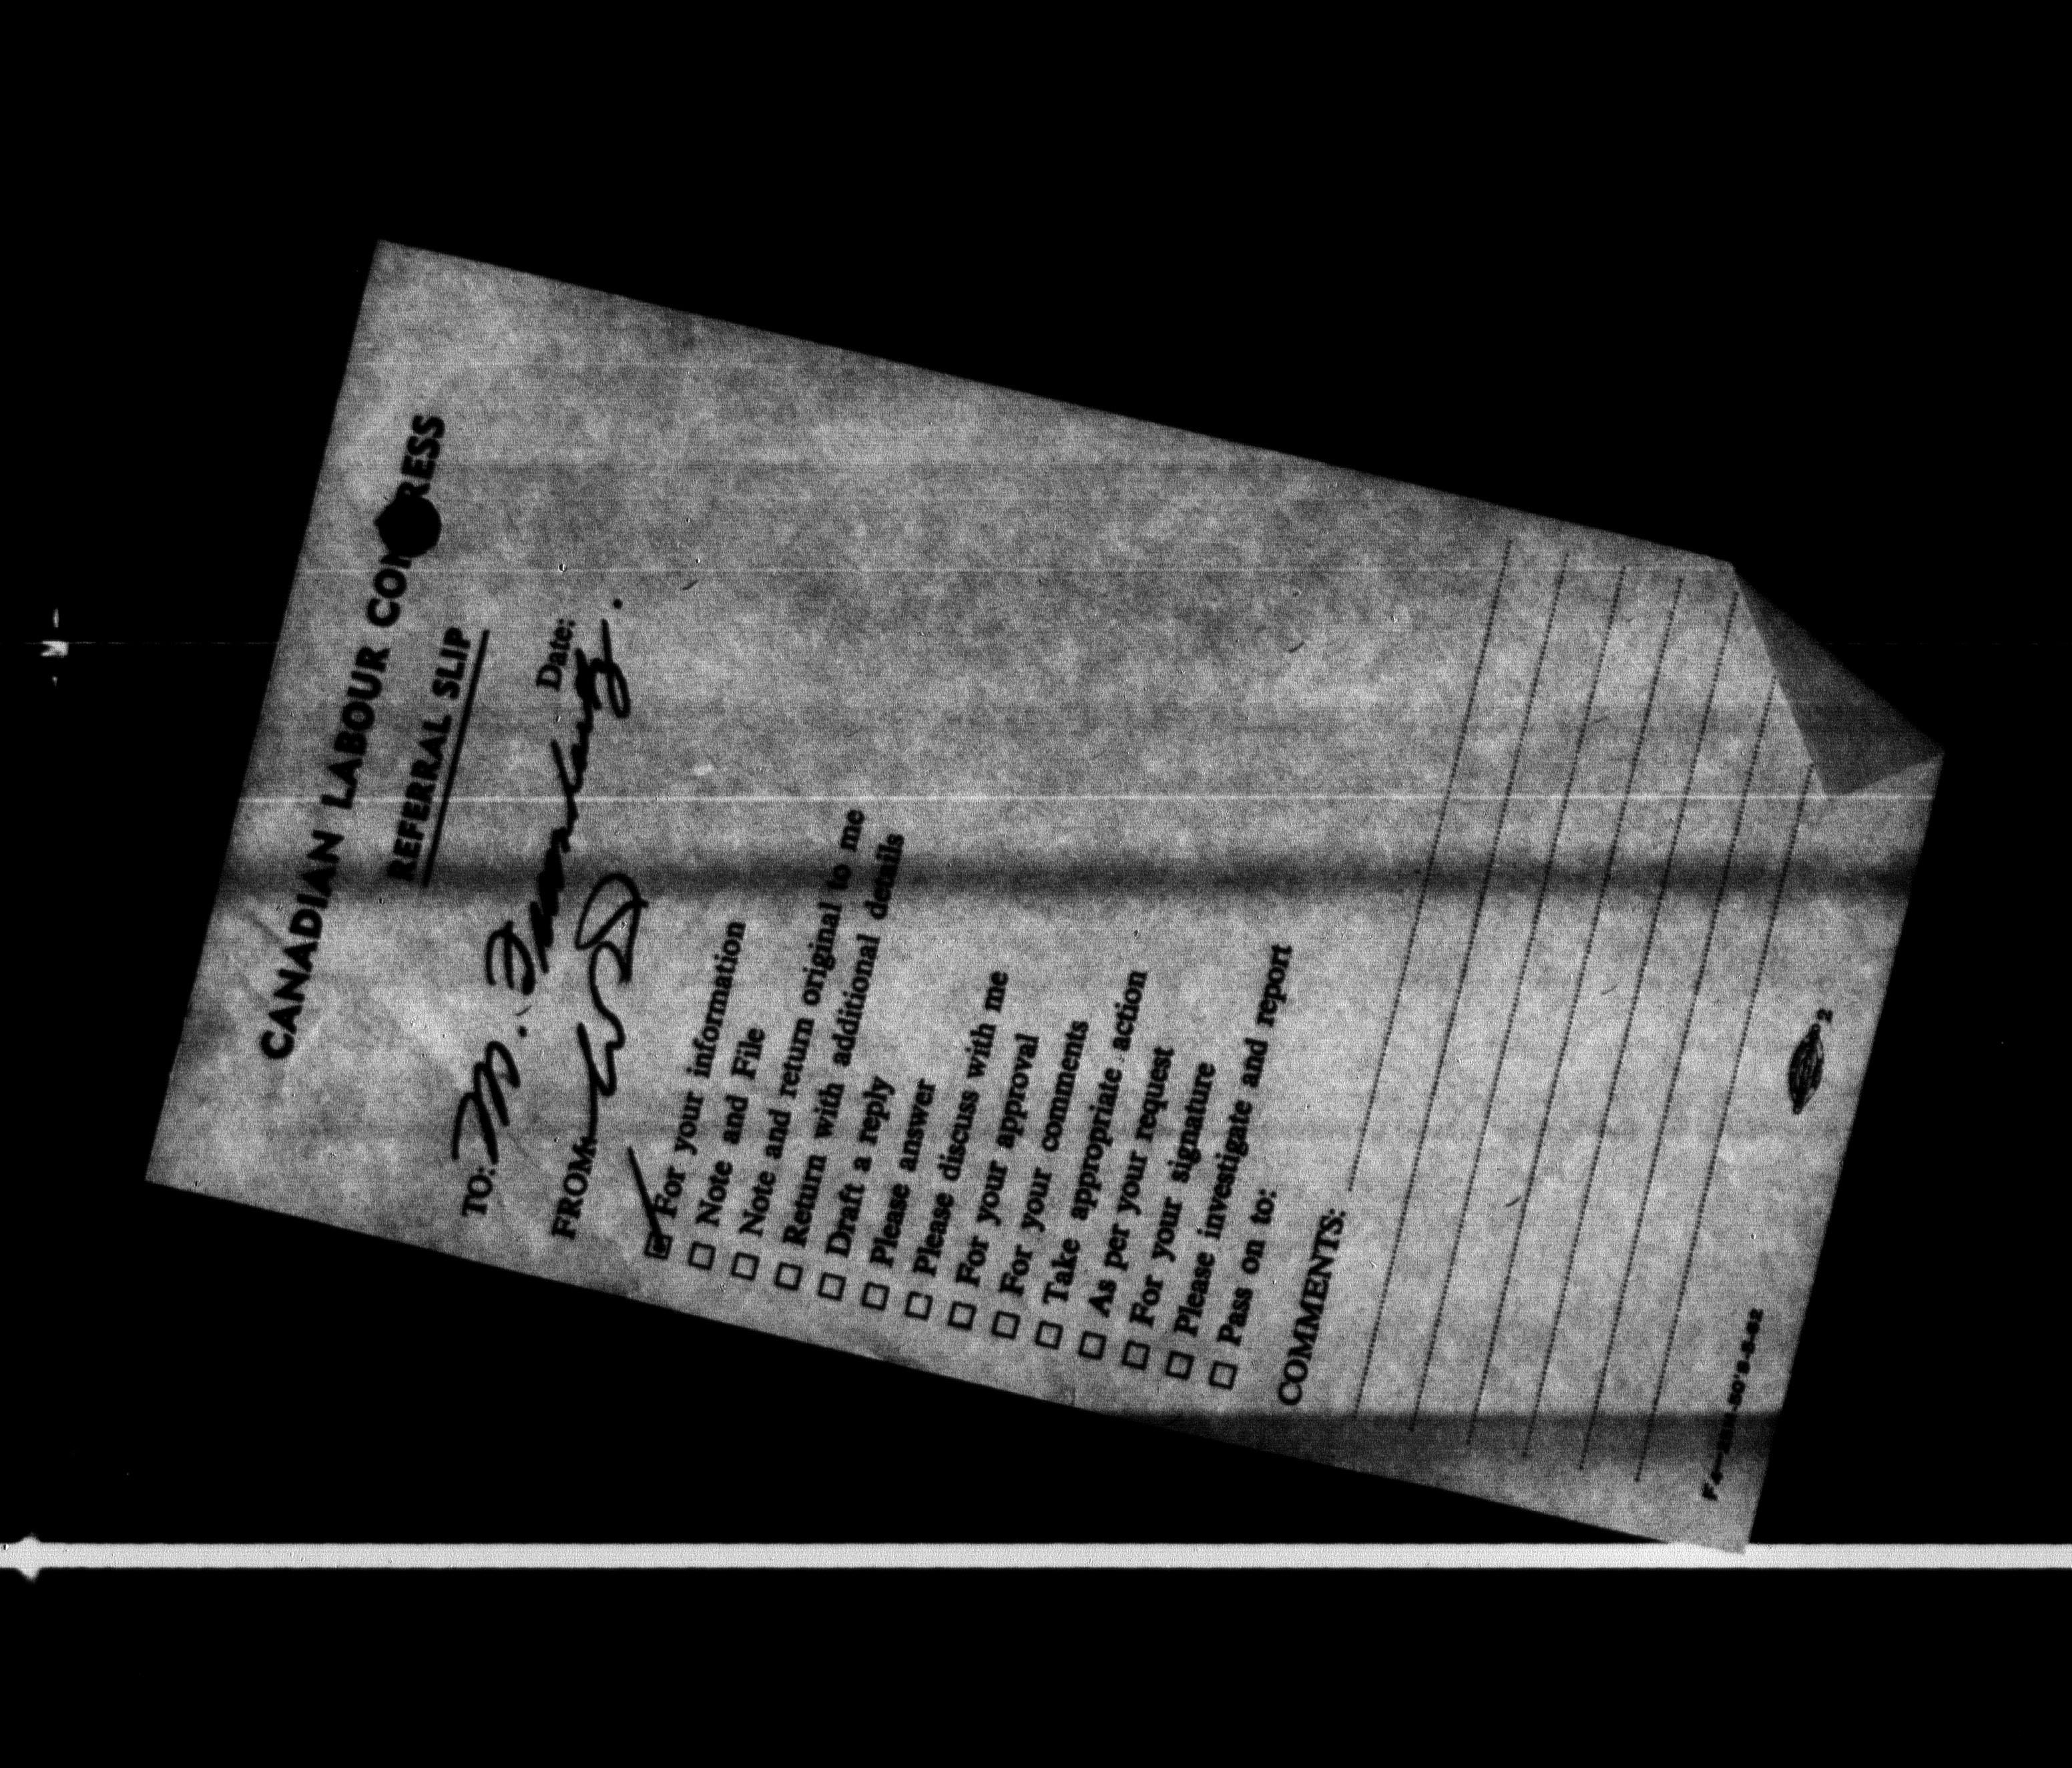 CANADIAN LABOUR CON RESS
REFERRAL SLIP
TO: M.
Date:
FROM: WD
For your information
Note and File
Note and return original to me
Return with additional details
Draft a reply
Please answer
Please discuss with me
For your approval
For your comments
Take appropriate action
As per your request
For your signature
Please investigate and report
Pass on to:
COMMENTS:
2